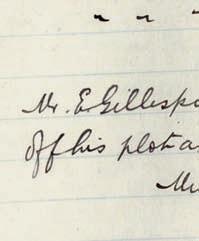 Mr. E. Gillesp
Off his plot a